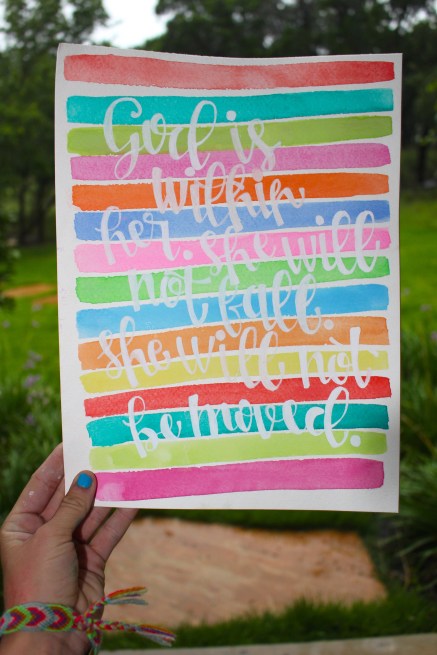 God is
within
her. she will
not fall.
she will not
be moved.